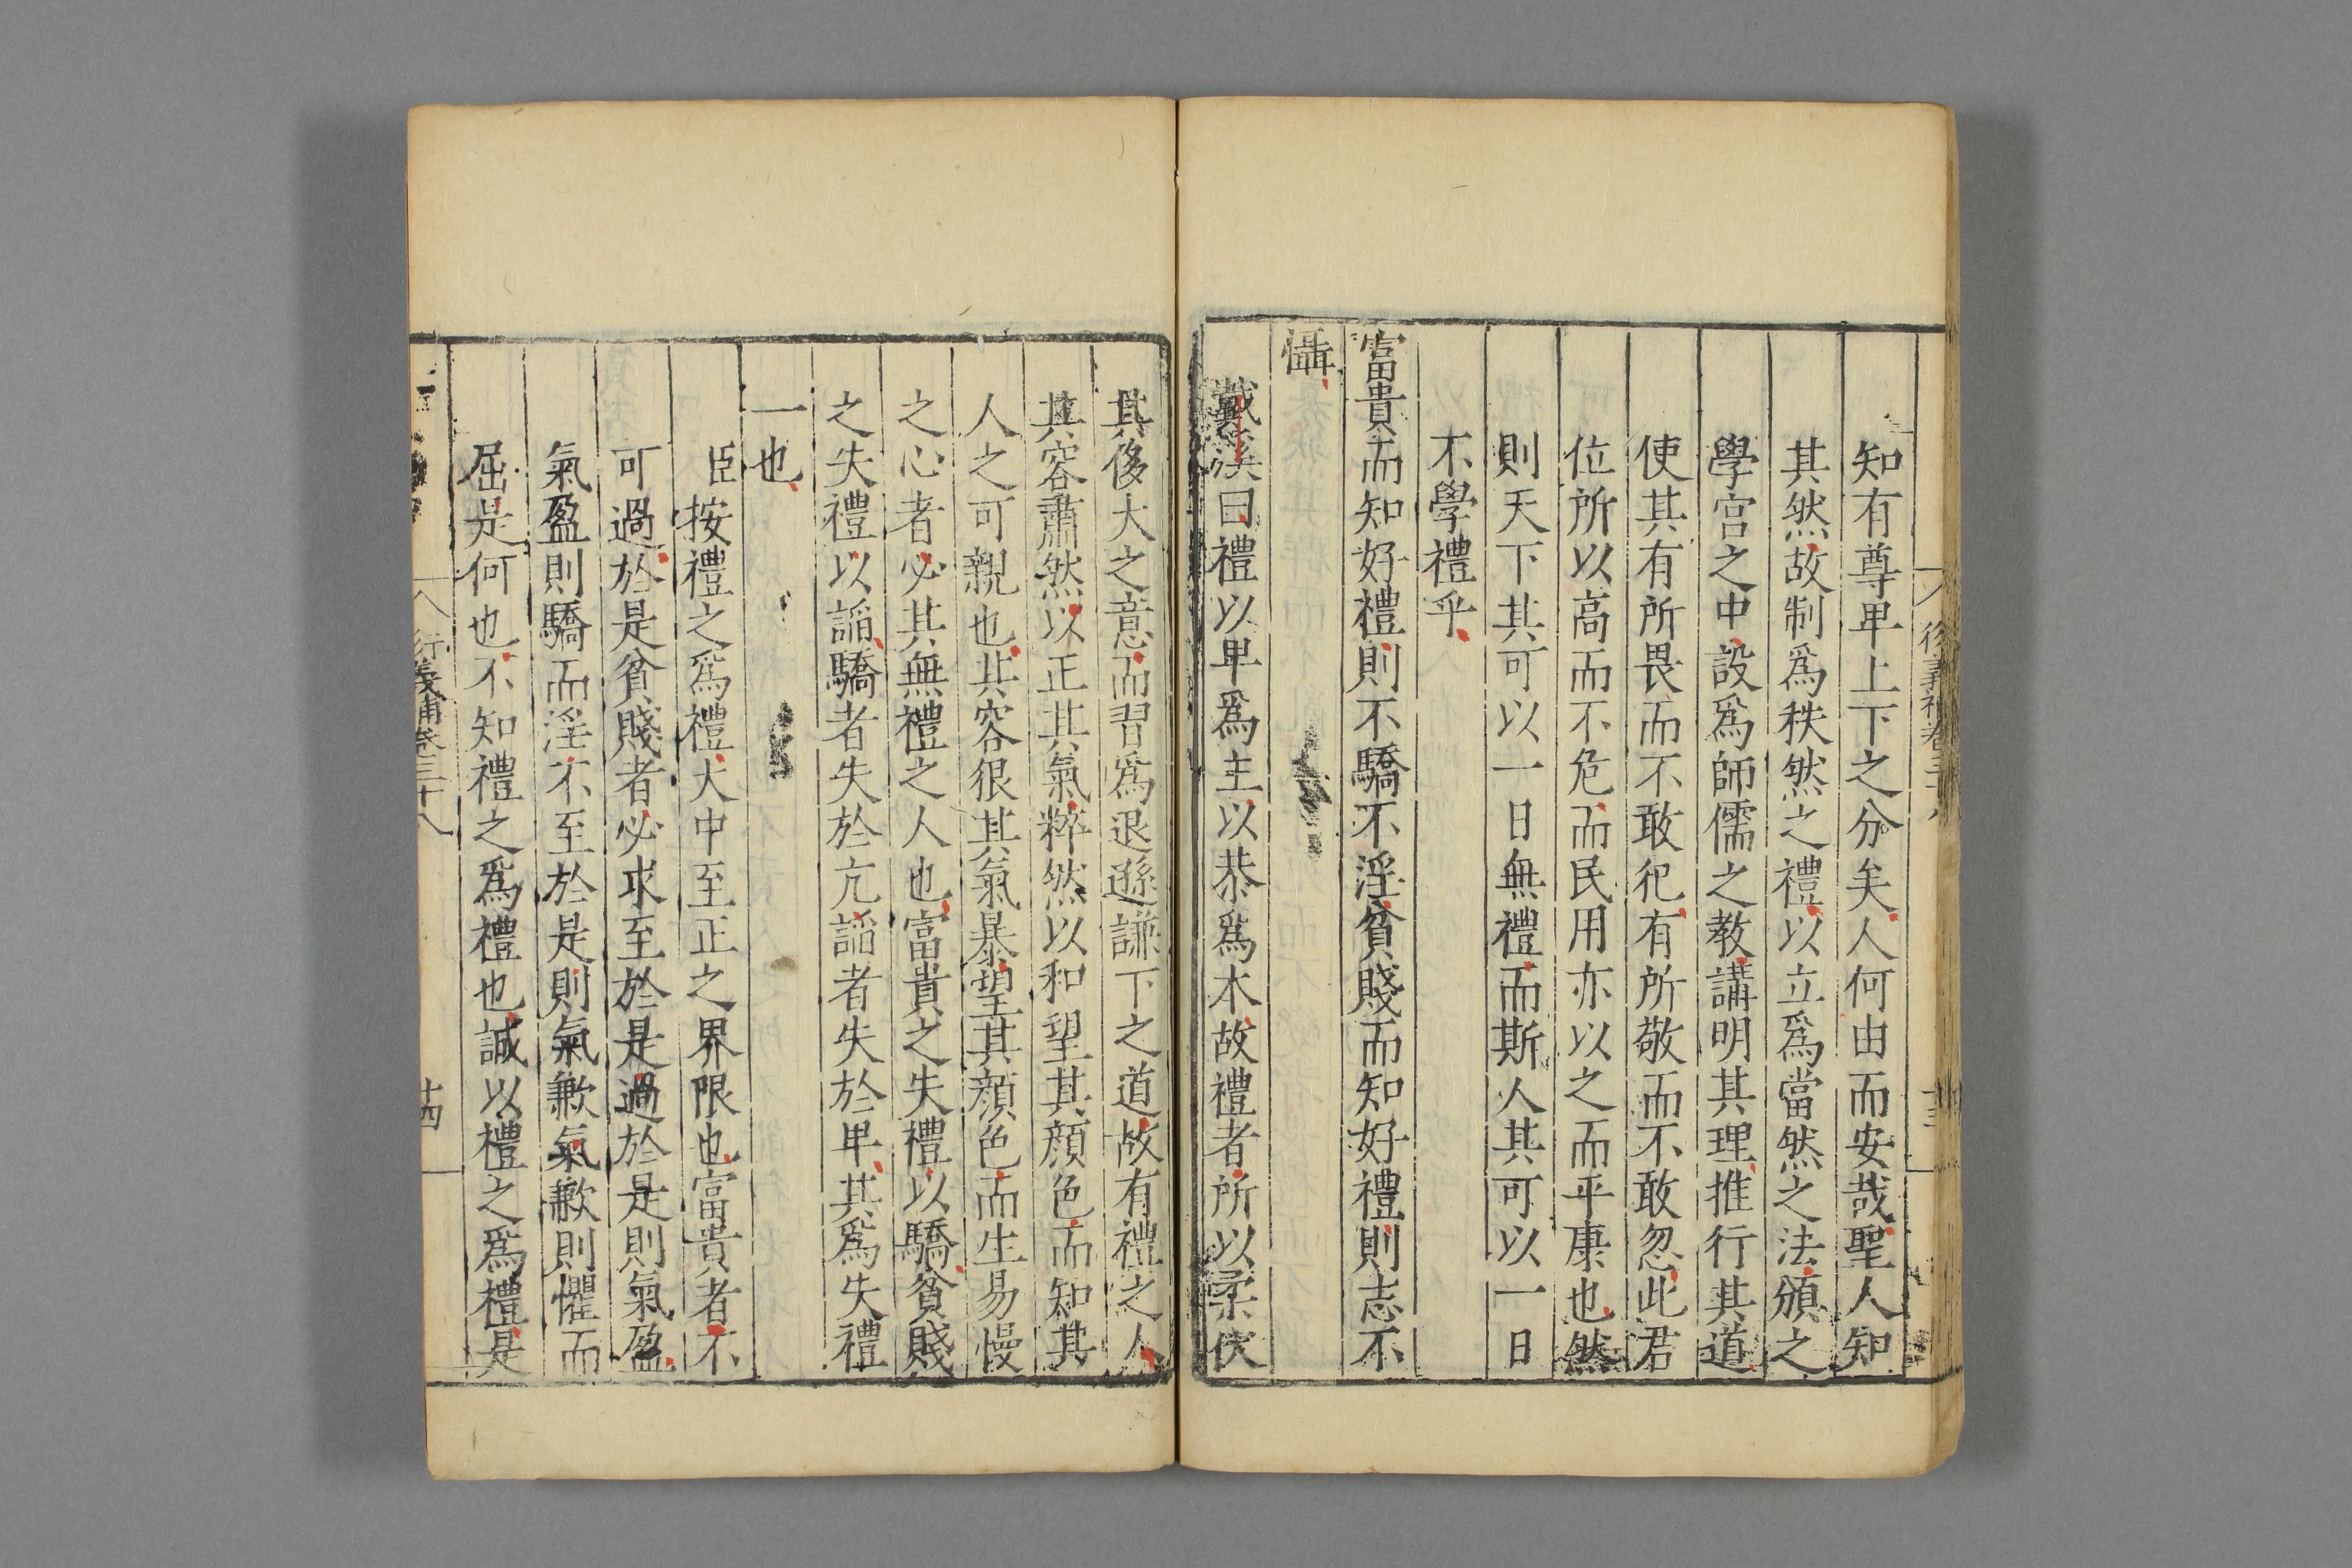 知有尊卑上下之分矣人何由而安哉聖人知
其然故制爲秩然之禮以立爲當然之法頒之
學宮之中設爲師儒之教講明其理推行其道
使其有所畏而不敢犯有所敬而不敢忽此君
位所以高而不危而民用亦以之而平康也然
則天下其可以一日無禮而斯人其可以一日
不學禮乎
富貴而知好禮則不驕不淫貧賤而知好禮則志不
懾
戴溪曰禮以卑爲主以恭爲本故禮者所以柔伏
其侈大之意而習爲退遜謙下之道故有禮之人
其容肅然以正其氣粹然以和望其顔色而知其
人之可親也其容很其氣暴望其顔色而生易慢
之心者必其無禮之人也富貴之失禮以驕貧賤
之失禮以謟驕者失於亢謟者失於卑其爲失禮
一也
臣按禮之爲禮大中至正之界限也富貴者不
可過於是貧賤者必求至於是過於是則氣盈
氣盈則驕而淫不至於是則氣歉氣歉則懼而
屈是何也不知禮之爲禮也誠以禮之爲禮是
衍義補卷三十八
十四